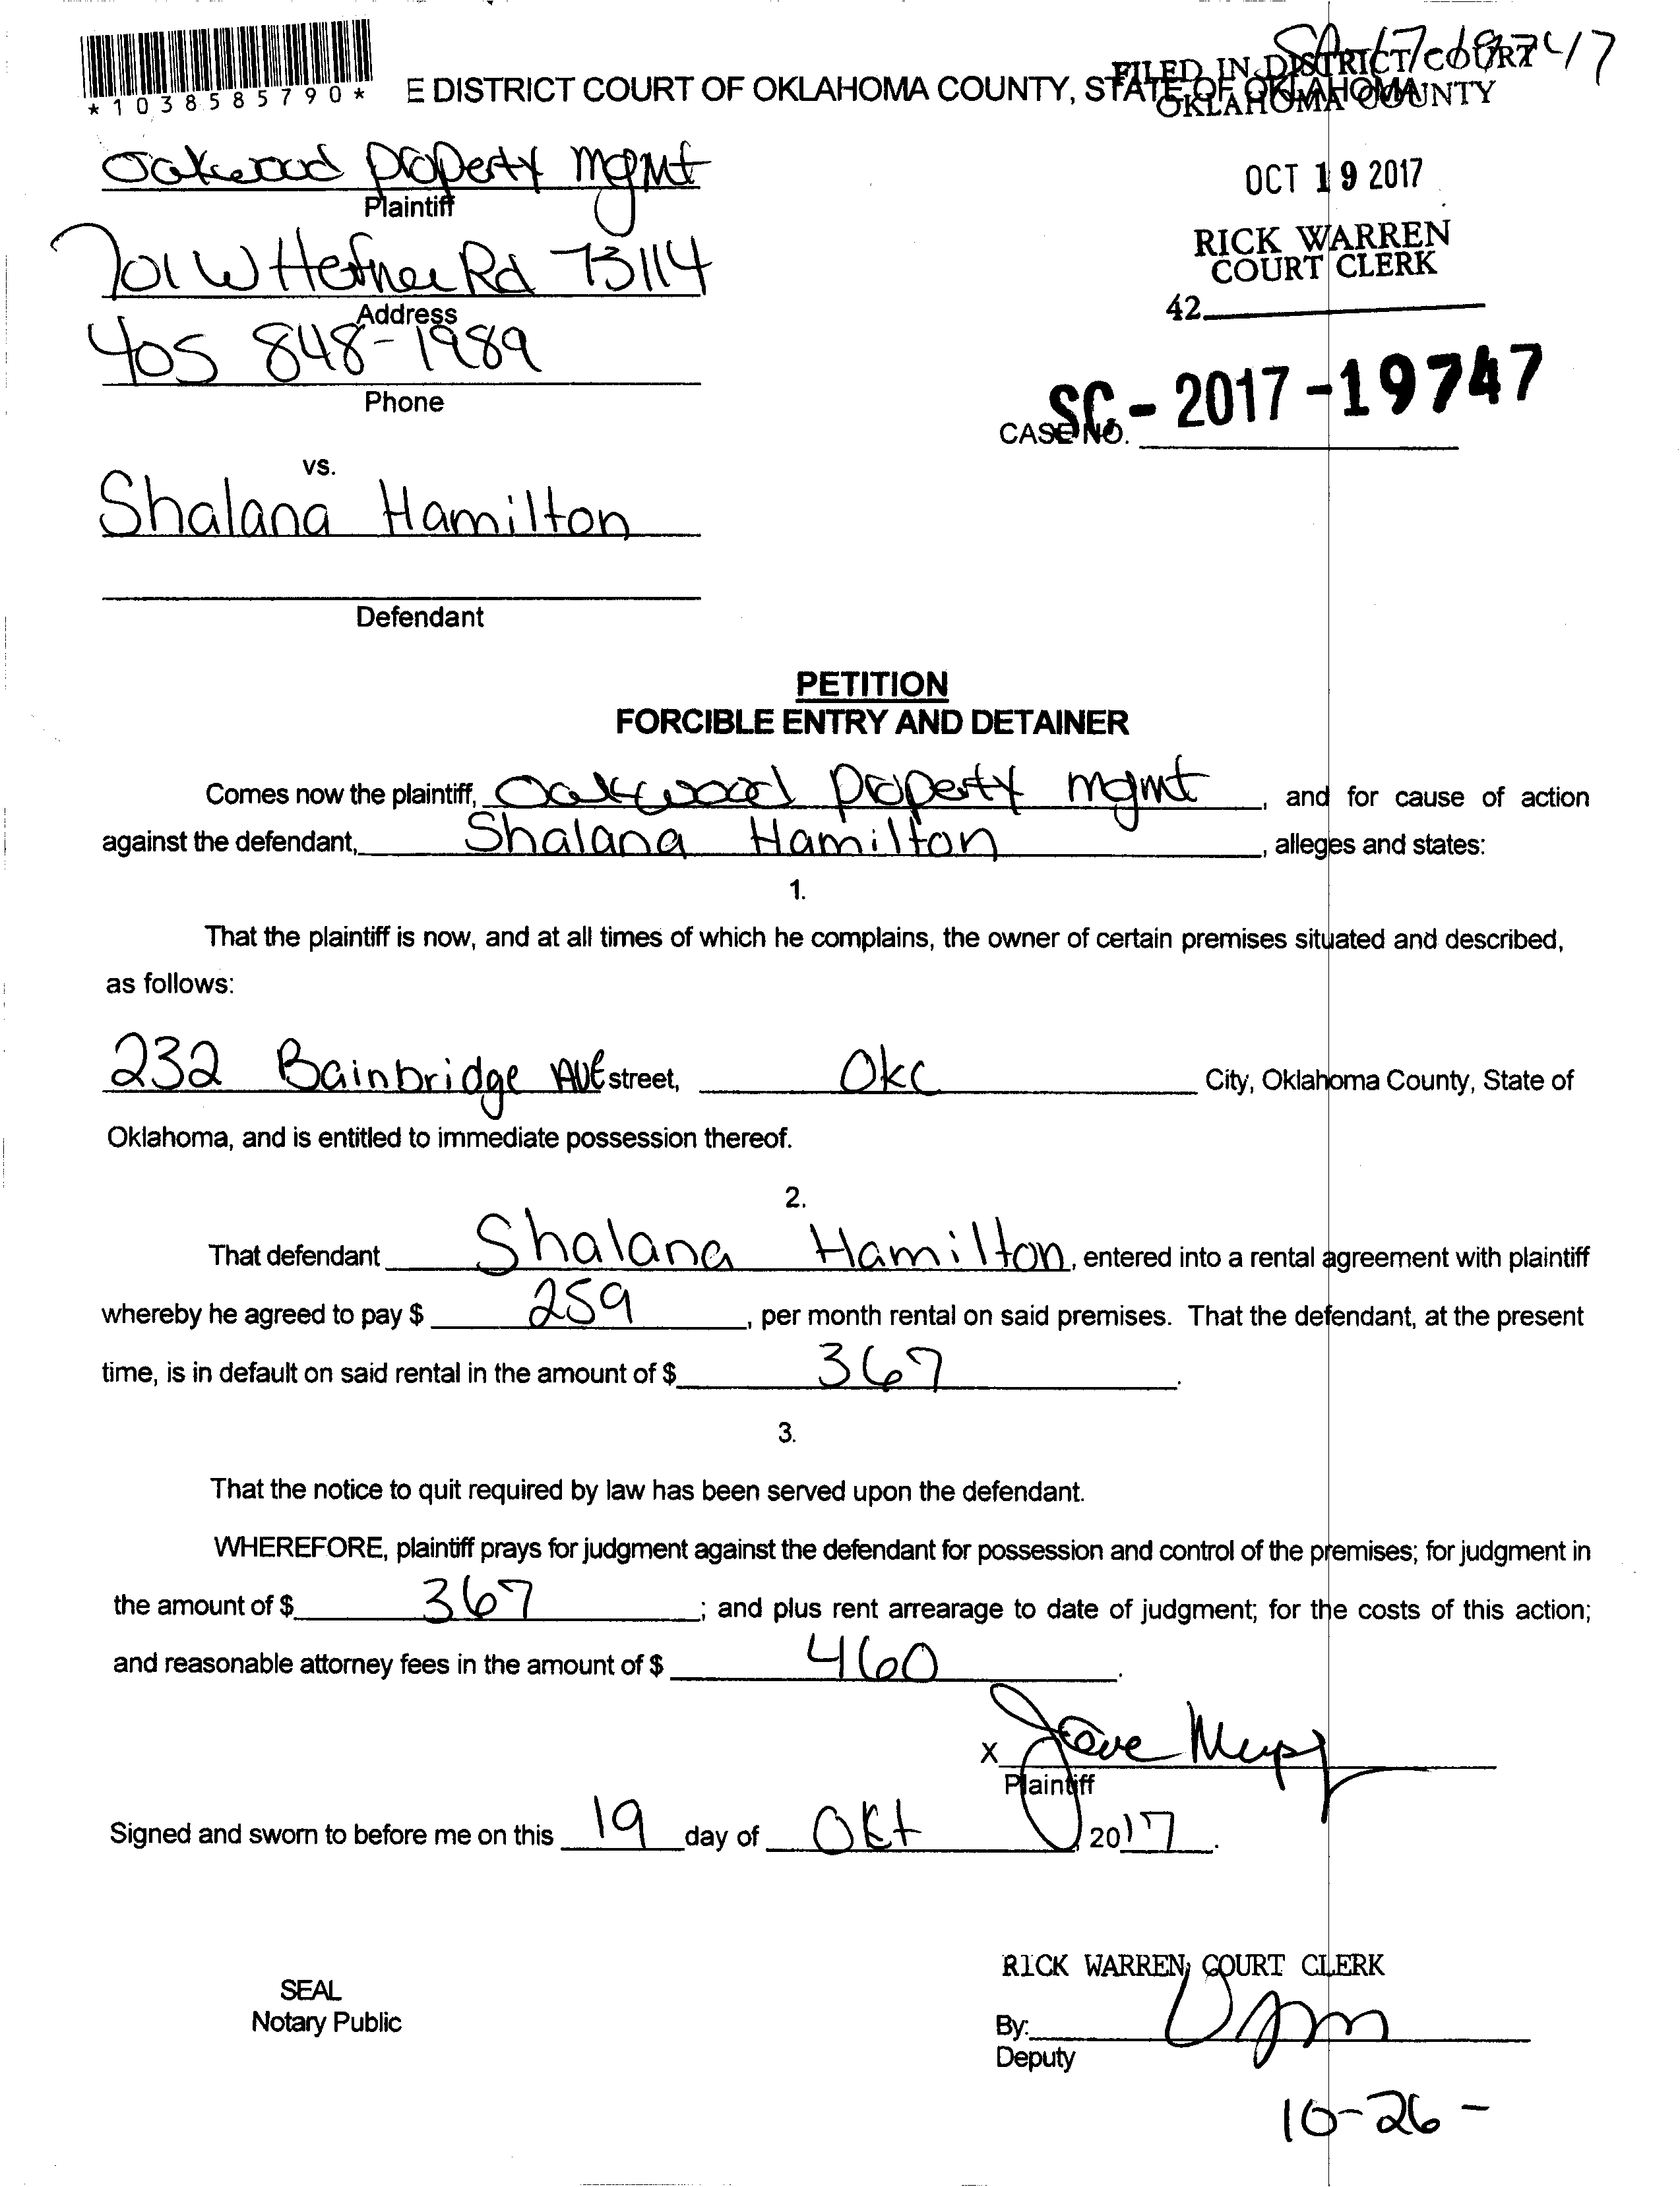 *1038585790*
E DISTRICT COURT OF OKLAHOMA COUNTY, STATE OF OKLAHOMA
FILED IN DISTRICT COURT
OKLAHOMA COUNTY
OCT 19 2017
RICK WARREN
COURT CLERK
42
Oakwood Property mgmt
Plaintiff
701 W Hefner Rd 73114
Address
405 848-1989
Phone
CASE NO. SC-2017-19747
vs.
Shalana Hamilton
Defendant
PETITION
FORCIBLE ENTRY AND DETAINER
Comes now the plaintiff, Oakwood Property mgmt, and for cause of action
against the defendant, Shalana Hamilton, alleges and states:
1.
That the plaintiff is now, and at all times of which he complains, the owner of certain premises situated and described,
as follows:
232 Bainbridge AVE street, OKC City, Oklahoma County, State of
Oklahoma, and is entitled to immediate possession thereof.
2.
That defendant Shalana Hamilton, entered into a rental agreement with plaintiff
whereby he agreed to pay $ 259, per month rental on said premises. That the defendant, at the present
time, is in default on said rental in the amount of $ 367.
3.
That the notice to quit required by law has been served upon the defendant.
WHEREFORE, plaintiff prays for judgment against the defendant for possession and control of the premises; for judgment in
the amount of $ 367; and plus rent arrearage to date of judgment; for the costs of this action;
and reasonable attorney fees in the amount of $ 460.
X
Plaintiff
Signed and sworn to before me on this 19 day of Okt, 2017.
RICK WARREN, COURT CLERK
SEAL
Notary Public
By:
Deputy
10-26-